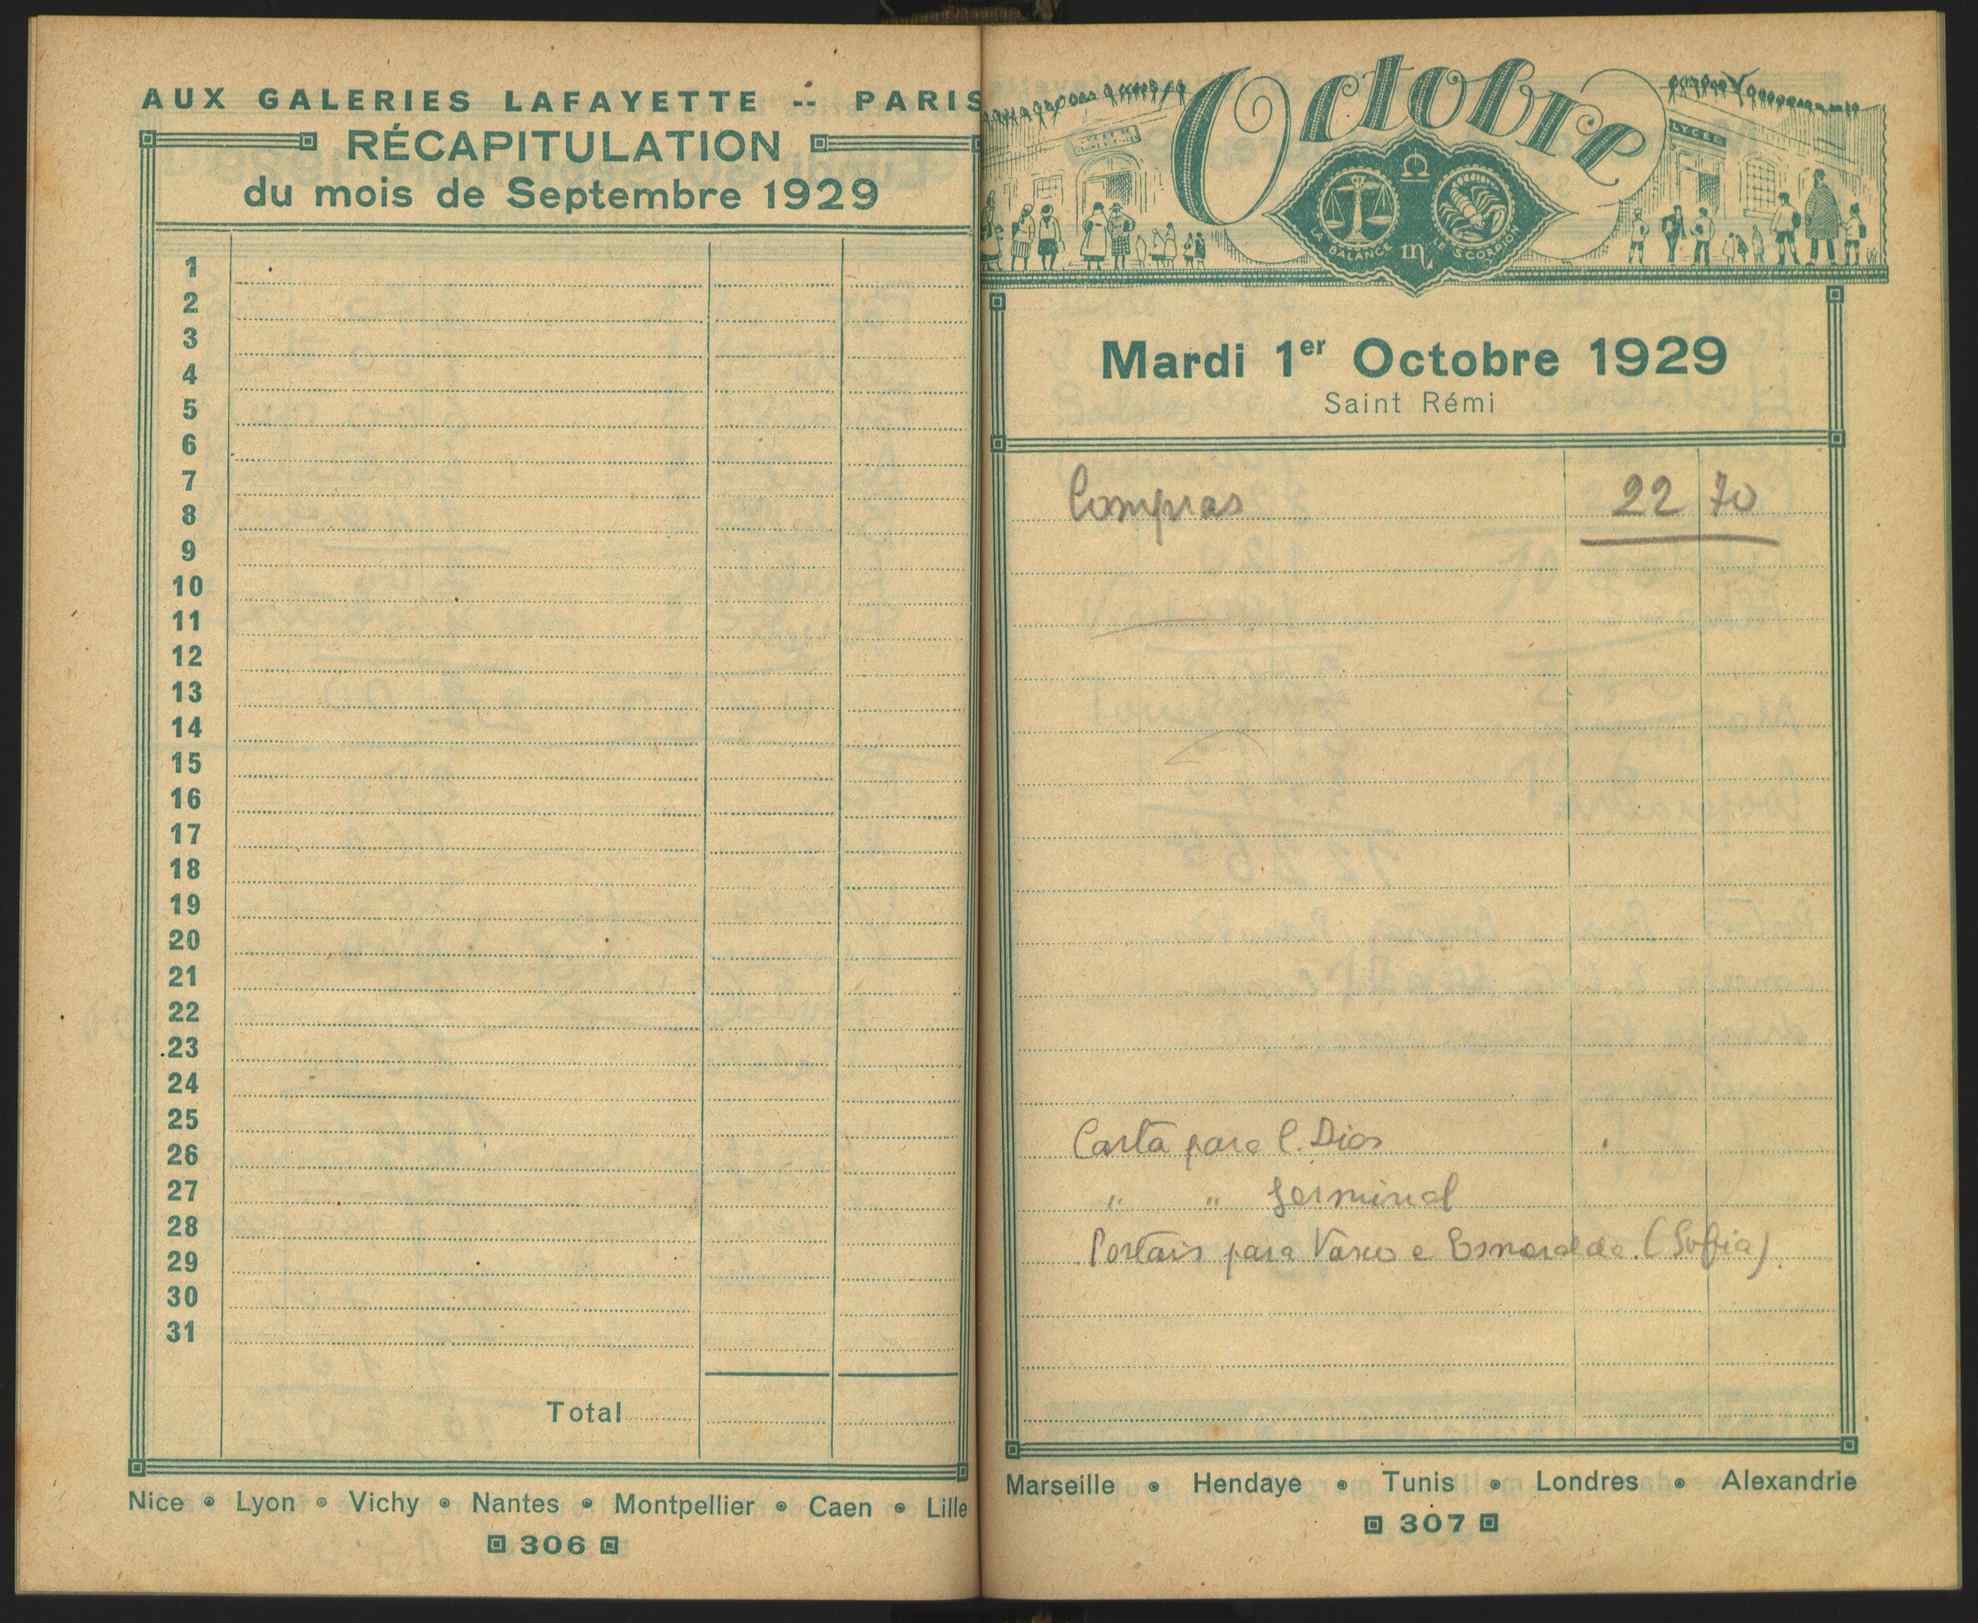 AUX GALERIES LAFAYETTE -- PARIS
RÉCAPITULATION
du mois de Septembre 1929
1
2
3
4
5
6
7
8
9
10
11
12
13
14
15
16
17
18
19
20
21
22
23
24
25
26
27
28
29
30
31
Total
Nice • Lyon • Vichy • Nantes • Montpellier • Caen • Lille
306
Octobre
LYCEE
LA BALANCE
LE SCORPION
Mardi 1er Octobre 1929
Saint Rémi
Compras 22 70
Carta para C. Dios
" " Germinal
Postais para Vasco e Esmeralda. (Sofia).
Marseille • Hendaye • Tunis • Londres • Alexandrie
307